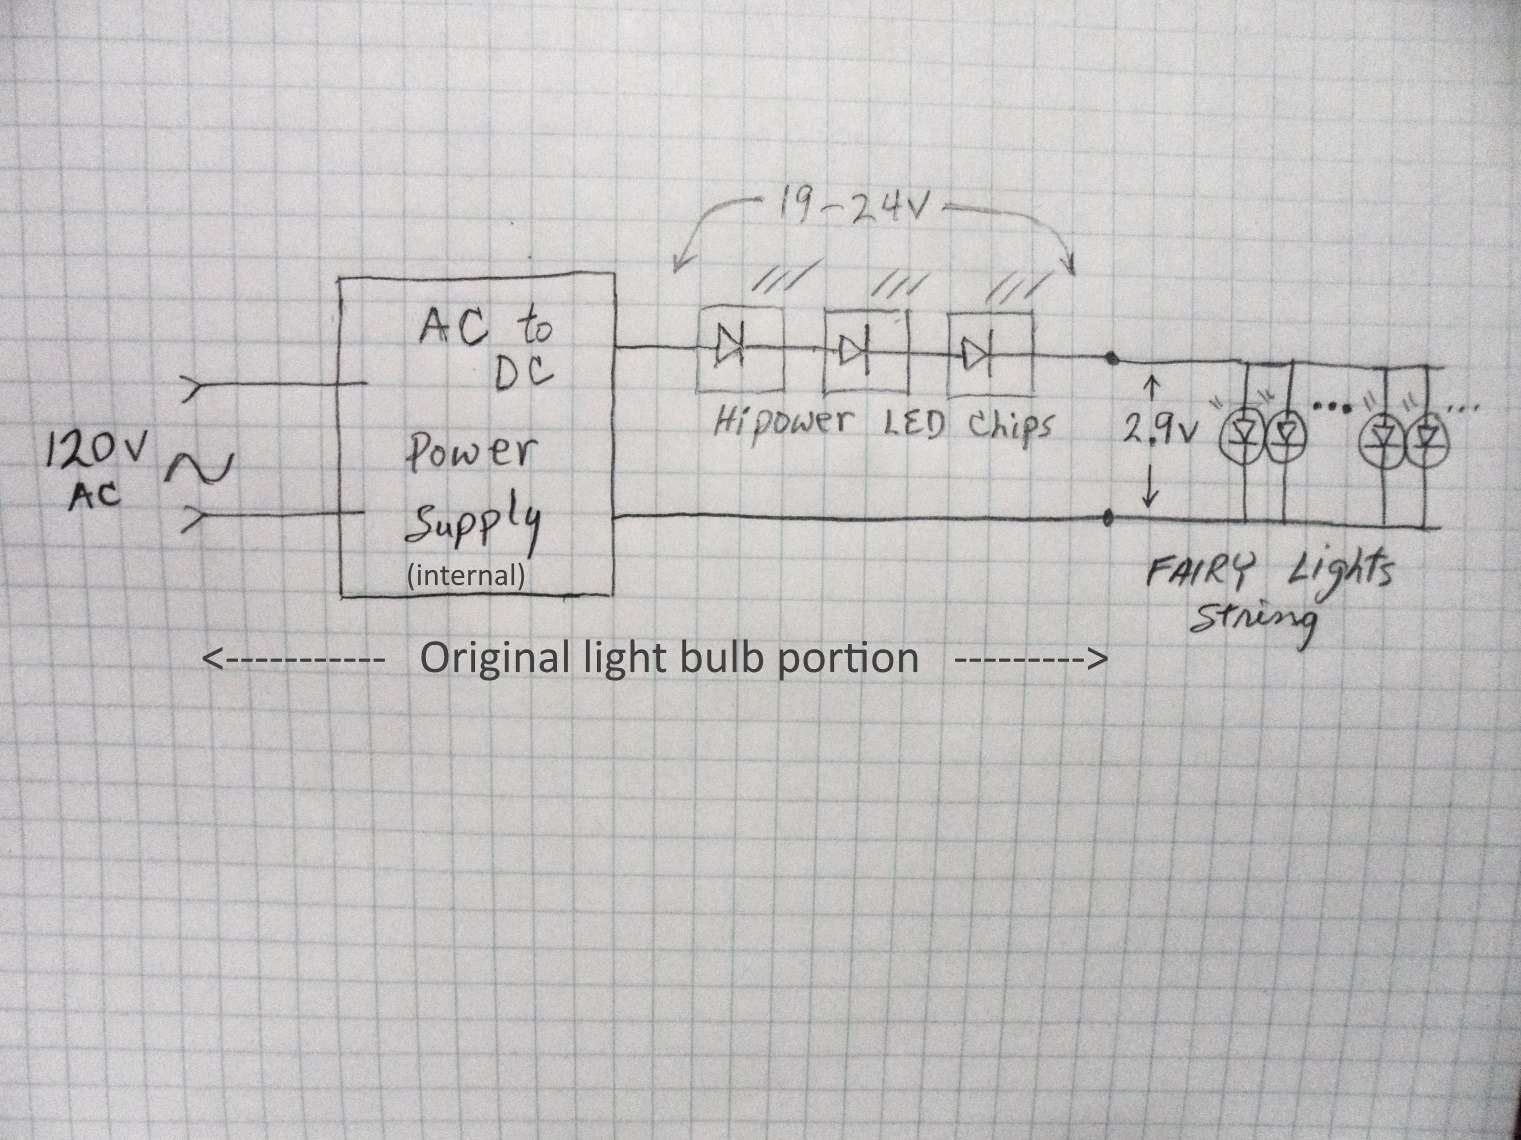 19-24V
AC to
DC
Power
Supply
(internal)
120V
AC
Hipower LED Chips
2.9V
FAIRY Lights
String
<----------- Original light bulb portion --------->